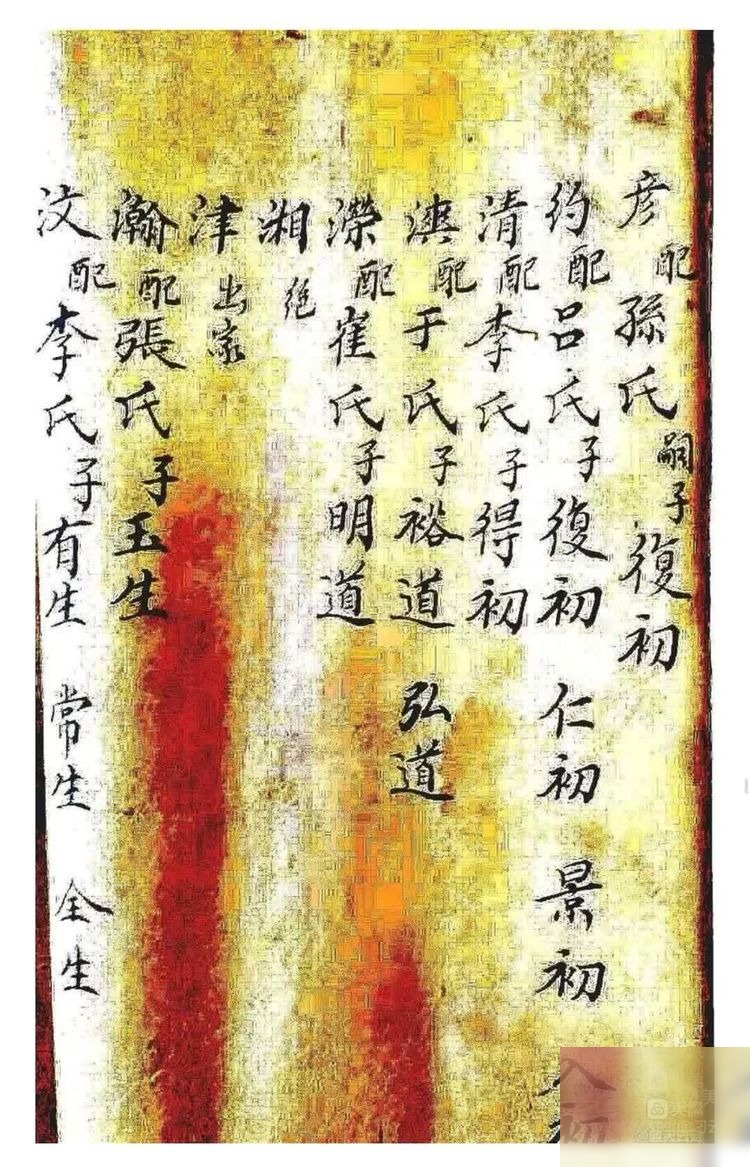 彦配孫氏嗣子復初
約配呂氏子復初 仁初 景初
清配李氏子得初
澳配于氏子裕道 弘道
濼配崔氏子明道
湘絕
津出家
瀚配張氏子玉生
汶配李氏子有生 常生 全生